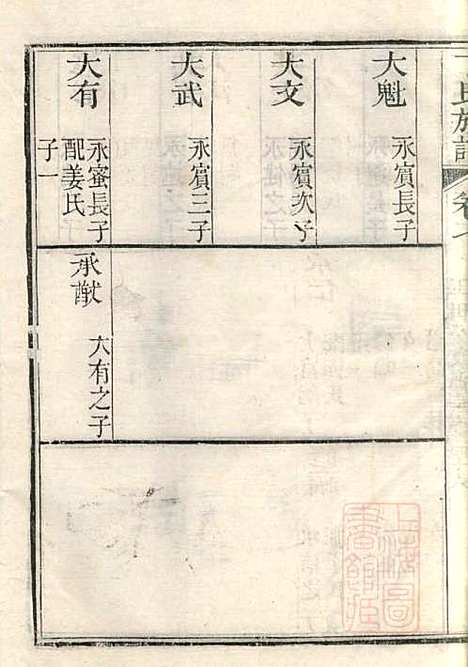 氏族譜
大魁
永賓長子
大文
永賓次子
大武
永賓三子
大有
永蜜長子
配姜氏
子一
承猷
大有之子